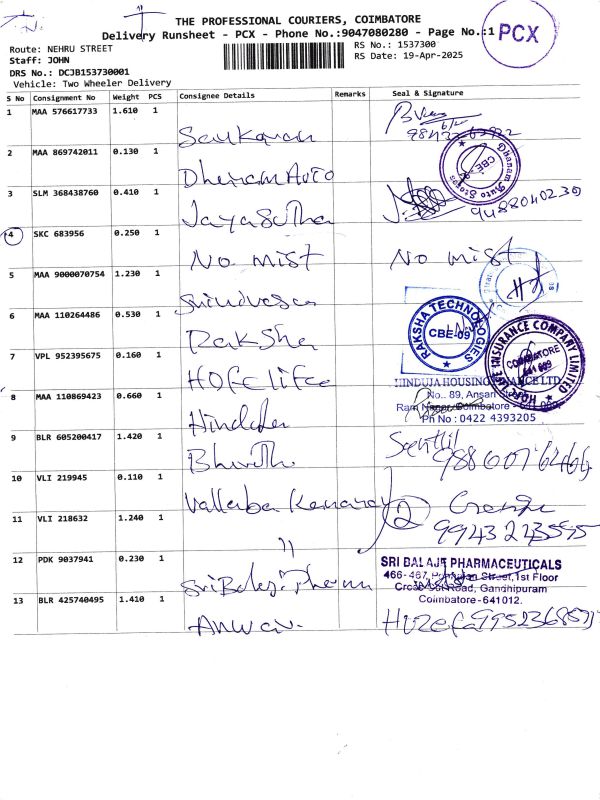 THE PROFESSIONAL COURIERS, COIMBATORE
Delivery Runsheet - PCX - Phone No.:9047080280 - Page No.:1
PCX
Route: NEHRU STREET
RS No.: 1537300
Staff: JOHN
RS Date: 19-Apr-2025
DRS No.: DCJB153730001
Vehicle: Two Wheeler Delivery
S No Consignment No Weight PCS Consignee Details Remarks Seal & Signature
1 MAA 576617733 1.610 1
2 MAA 869742011 0.130 1
Dhanam Auto
Dhanam Auto Stores
CBE-9
3 SLM 368438760 0.410 1
Jayasutha
9488040230
4 SKC 683956 0.250 1
No mist No mist
5 MAA 9000070754 1.230 1
6 MAA 110264486 0.530 1
Raksha
RAKSHA TECHNOLOGIES
CBE-09
7 VPL 952395675 0.160 1
INSURANCE COMPANY LIMITED
COIMBATORE
641 009
HINDUJA HOUSING FINANCE LTD
8 MAA 110869423 0.660 1
No.. 89, Ansari Street
Ram Nagar, Coimbatore -
Ph No : 0422 4393205
Hinduja
9 BLR 605200417 1.420 1
Senthil
10 VLI 219945 0.110 1
2
11 VLI 218632 1.240 1
9943243595
"
12 PDK 9037941 0.230 1
SRI BALAJI PHARMACEUTICALS
466-467, Street,1st Floor
Cross Cut Road, Gandhipuram
Coimbatore - 641012.
Sri Balaji Pharm
13 BLR 425740495 1.410 1
Anwar
Huzefa